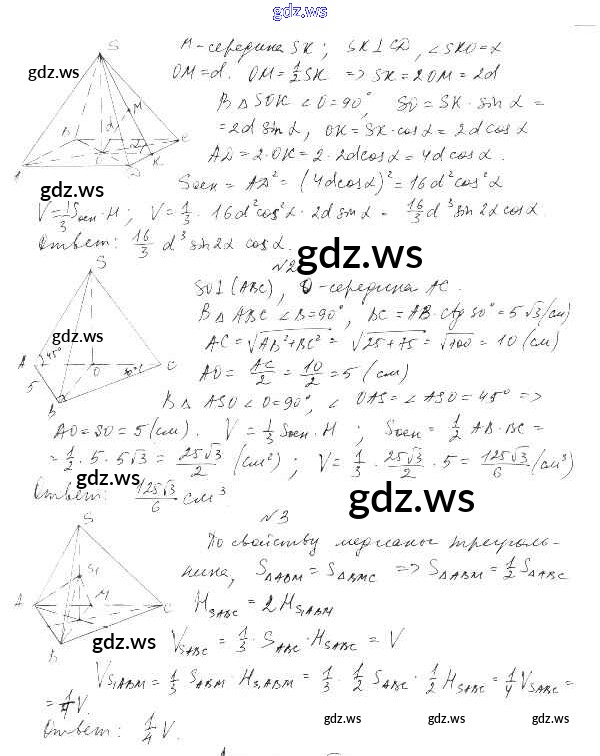 gdz.ws
M - середина SK; SK⊥CD, ∠SKO=α
gdz.ws
OM=d. OM=1/2 SK => SK=2OM=2d
В △SOK ∠O=90°, SO=SK·sin α=
=2d sin α, OK=SK·cos α=2d cos α
AD=2·OK=2·2d cos α=4d cos α.
Sосн=AD²=(4d cos α)²=16d² cos² α
gdz.ws
V=1/3 Sосн·H; V=1/3·16d² cos² α·2d sin α=16/3 d³ sin 2α cos α.
Ответ: 16/3 d³ sin 2α cos α.
gdz.ws
№2
SO⊥(ABC), O - середина AC.
В △ABC ∠B=90°, BC=AB·ctg 30°=5√3 (см)
gdz.ws
AC=√AB²+BC²=√25+75=√100=10 (см)
AO=AC/2=10/2=5 (см)
В △ASO ∠O=90°, ∠OAS=∠ASO=45° =>
AO=SO=5 (см). V=1/3 Sосн·H; Sосн=1/2 AB·BC=
=1/2·5·5√3=25√3/2 (см²); V=1/3·25√3/2·5=125√3/6 (см³)
gdz.ws
Ответ: 125√3/6 см³
gdz.ws
№3
По свойству медианы треуголь-
ника, S△ABM=S△BMC => S△ABM=1/2 S△ABC
HSABC=2HS₁ABM
gdz.ws
VSABC=1/3·SABC·HSABC=V
VS₁ABM=1/3 SABM·HS₁ABM=1/3·1/2 SABC·1/2 HSABC=1/4 VSABC=
=1/4 V.
Ответ: 1/4 V.
gdz.ws gdz.ws gdz.ws
S
M
B
C
A
D
K
O
α
S
A
45°
5
O
30°
C
B
S
S₁
A
M
C
B